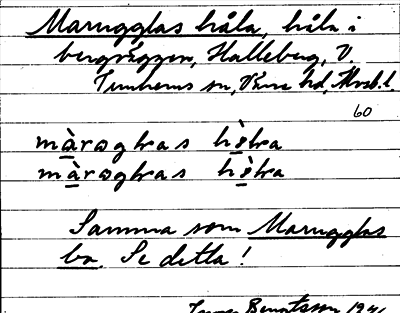 Maruggglas håla, håla i
bergväggen, Halleberg, V.
Tunhems sn, Väne hd, Älvsb. l.
60
màrogłas hòła
màrogłas hòła
Samma som Marugglas
bo. Se detta!
Bengtsson